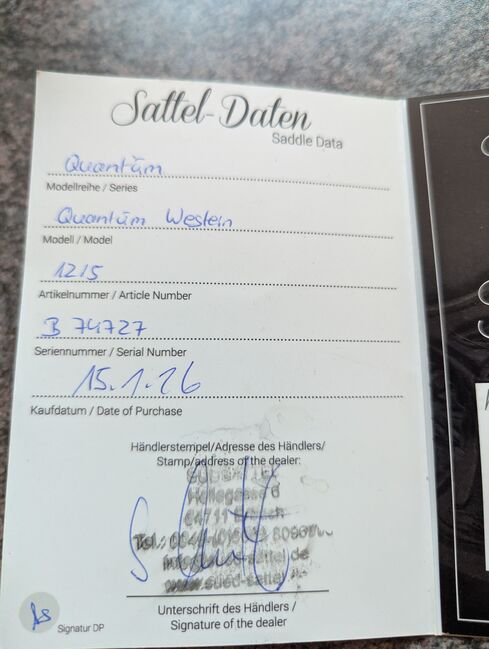 Sattel-Daten
Saddle Data
Quantum
Modellreihe / Series
Quantum Western
Modell / Model
1215
Artikelnummer / Article Number
B 74727
Seriennummer / Serial Number
15.1.26
Kaufdatum / Date of Purchase
Händlerstempel/Adresse des Händlers/
Stamp/address of the dealer:
64711
Tel.:
Unterschrift des Händlers /
Signature of the dealer
Signatur DP